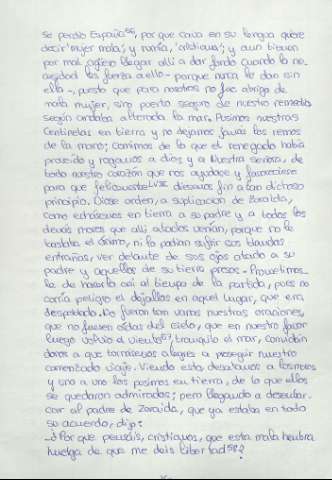 se perdió España⁵⁶, porque cava en su lengua quiere
decir 'mujer mala', y rumía, 'cristiana'; y aun tienen
por mal agüero llegar allí a dar fondo cuando la ne-
cesidad les fuerza a ello - porque nunca le dan sin
ella -, puesto que para nosotros no fue abrigo de
mala mujer, sino puerto seguro de nuestro remedio,
según andaba alterada la mar. Pusimos nuestras
centinelas en tierra y no dejamos jamás los remos
de la mano; comimos de lo que el renegado había
proveído y rogamos a dios y a Nuestra señora, de
todo nuestro corazón que nos ayudase y favoreciese
para que felicemente diésemos fin a tan dichoso
principio. Diose orden, a suplicación de Zoraida,
como echásemos en tierra a su padre y a todos los
demás moros que allí atados venían, porque no le
bastaba el ánimo, ni lo podían sufrir sus blandas
entrañas, ver delante de sus ojos atado a su
padre y aquellos de su tierra presos. Prometimos-
le de hacerlo así al tiempo de la partida, pues no
corría peligro el dejallos en aquel lugar, que era
despoblado. No fueron tan vanas nuestras oraciones,
que no fuesen oídas del cielo, que en nuestro favor
luego volvió el viento⁵⁷, tranquilo el mar, convidán-
donos a que tornásemos alegres a proseguir nuestro
comenzado viaje. Viendo esto, desatamos a los moros
y uno a uno los pusimos en tierra, de lo que ellos
se quedaron admirados; pero llegando a desembar-
car al padre de Zoraida, que ya estaba en todo
su acuerdo, dijo:
- ¿Por qué pensáis, cristianos, que esta mala hembra
huelga de que me deis libertad⁵⁸?